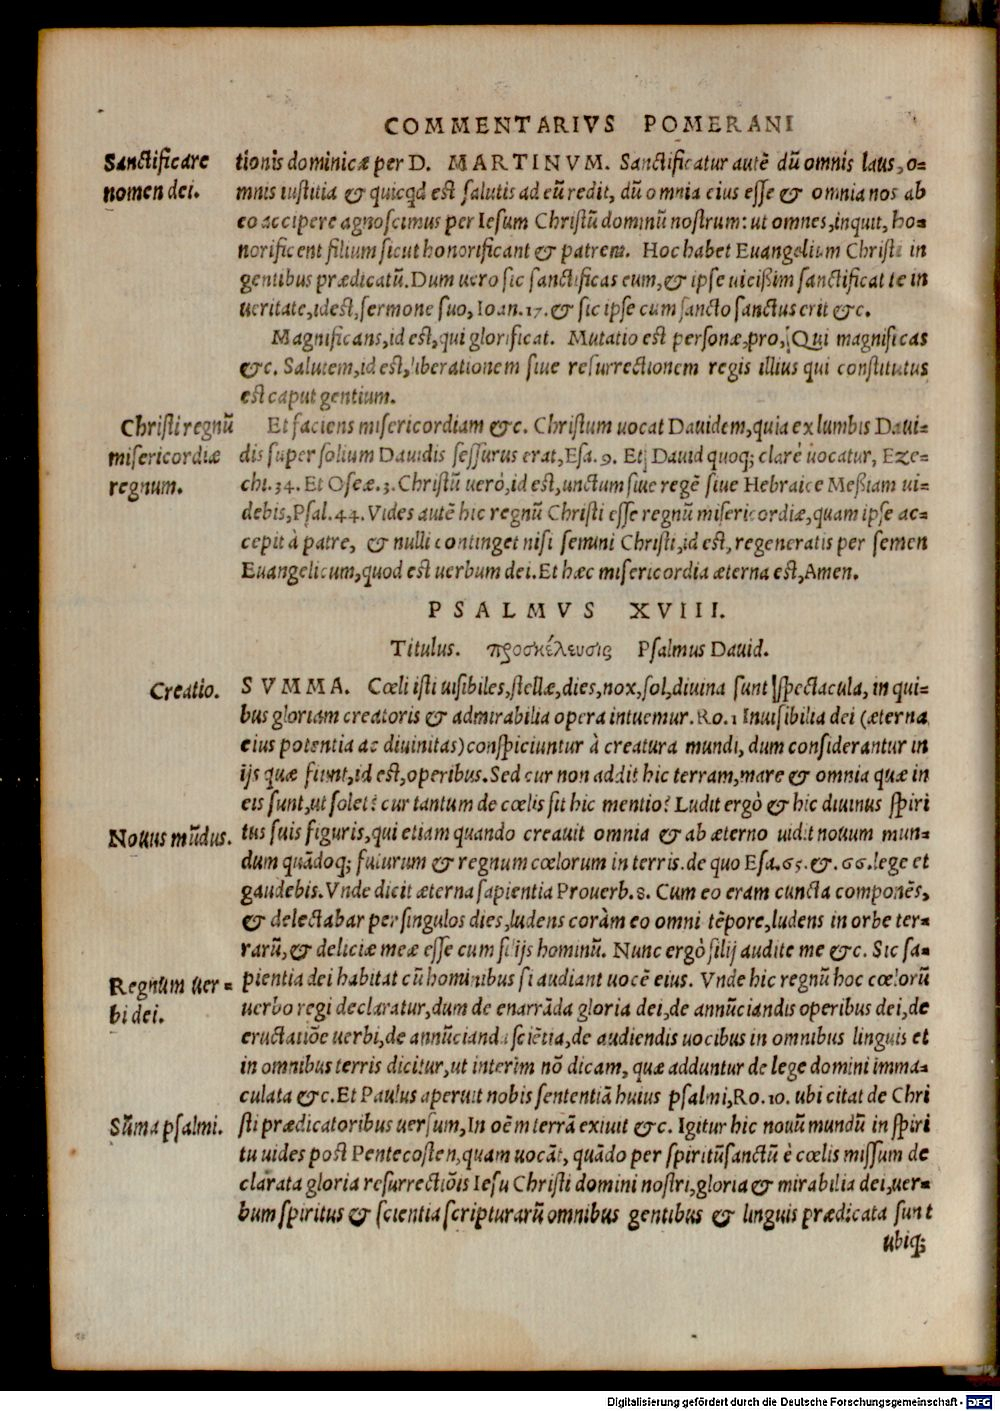 COMMENTARIVS POMERANI
Sanctificare
nomen dei.
tionis dominicæ per D. MARTINVM. Sanctificatur autẽ dũ omnis laus, o-
mnis iustitia & quicqd est salutis ad eũ redit, dũ omnia eius esse & omnia nos ab
eo accipere agnoscimus per Iesum Christũ dominũ nostrum: ut omnes, inquit, ho-
norificent filium sicut honorificant & patrem. Hoc habet Euangelium Christi in
gentibus prædicatũ. Dum uero sic sanctificas eum, & ipse uicißim sanctificat te in
ueritate, idest, sermone suo, Ioan. 17. & sic ipse cum sancto sanctus erit &c.
Magnificans, id est, qui glorificat. Mutatio est personæ, pro, Qui magnificas
&c. Salutem, id est, liberationem siue resurrectionem regis illius qui constitutus
est caput gentium.
Christi regnũ
misericordiæ
regnum.
Et faciens misericordiam &c. Christum uocat Dauidem, quia ex lumbis Daui-
dis super solium Dauidis sessurus erat, Esa. 9. Et Dauid quoq; clarè uocatur, Eze-
chi. 34. Et Oseæ. 3. Christũ uerò, id est, unctum siue regẽ siue Hebraice Meßiam ui-
debis, Psal. 44. Vides autẽ hic regnũ Christi esse regnũ misericordiæ, quam ipse ac-
cepit à patre, & nulli continget nisi semini Christi, id est, regeneratis per semen
Euangelicum, quod est uerbum dei. Et hæc misericordia æterna est, Amen.
PSALMVS XVIII.
Titulus. προσκέλευσις Psalmus Dauid.
Creatio.
SVMMA. Cœli isti uisibiles, stellæ, dies, nox, sol, diuina sunt spectacula, in qui-
bus gloriam creatoris & admirabilia opera intuemur. Ro. 1 Inuisibilia dei (æterna
eius potentia ac diuinitas) conspiciuntur à creatura mundi, dum considerantur in
ijs quæ fiunt, id est, operibus. Sed cur non addit hic terram, mare & omnia quæ in
eis sunt, ut solet? cur tantum de cœlis sit hic mentio? Ludit ergò & hic diuinus spiri
Nouus mũdus.
tus suis figuris, qui etiam quando creauit omnia & ab æterno uidit nouum mun-
dum quãdoq; futurum & regnum cœlorum in terris. de quo Esa. 65. &. 66. lege et
gaudebis. Vnde dicit æterna sapientia Prouerb. 8. Cum eo eram cuncta componẽs,
& delectabar per singulos dies, ludens coràm eo omni tẽpore, ludens in orbe ter-
rarũ, & deliciæ meæ esse cum filijs hominũ. Nunc ergò filij audite me &c. Sic sa-
Regnum uer-
bi dei.
pientia dei habitat cũ hominibus si audiant uocẽ eius. Vnde hic regnũ hoc cœlorũ
uerbo regi declaratur, dum de enarrãda gloria dei, de annũciandis operibus dei, de
eructatiõe uerbi, de annũcianda sciẽtia, de audiendis uocibus in omnibus linguis et
in omnibus terris dicitur, ut interim nõ dicam, quæ adduntur de lege domini imma-
culata &c. Et Paulus aperuit nobis sententiã huius psalmi, Ro. 10. ubi citat de Chri
Sũma psalmi.
sti prædicatoribus uersum, In oẽm terrã exiuit &c. Igitur hic nouũ mundũ in spiri
tu uides post Pentecosten, quam uocãt, quãdo per spiritũsanctũ è cœlis missum de
clarata gloria resurrectiõis Iesu Christi domini nostri, gloria & mirabilia dei, uer-
bum spiritus & scientia scripturarũ omnibus gentibus & linguis prædicata sunt
ubiq;
Digitalisierung gefördert durch die Deutsche Forschungsgemeinschaft - DFG